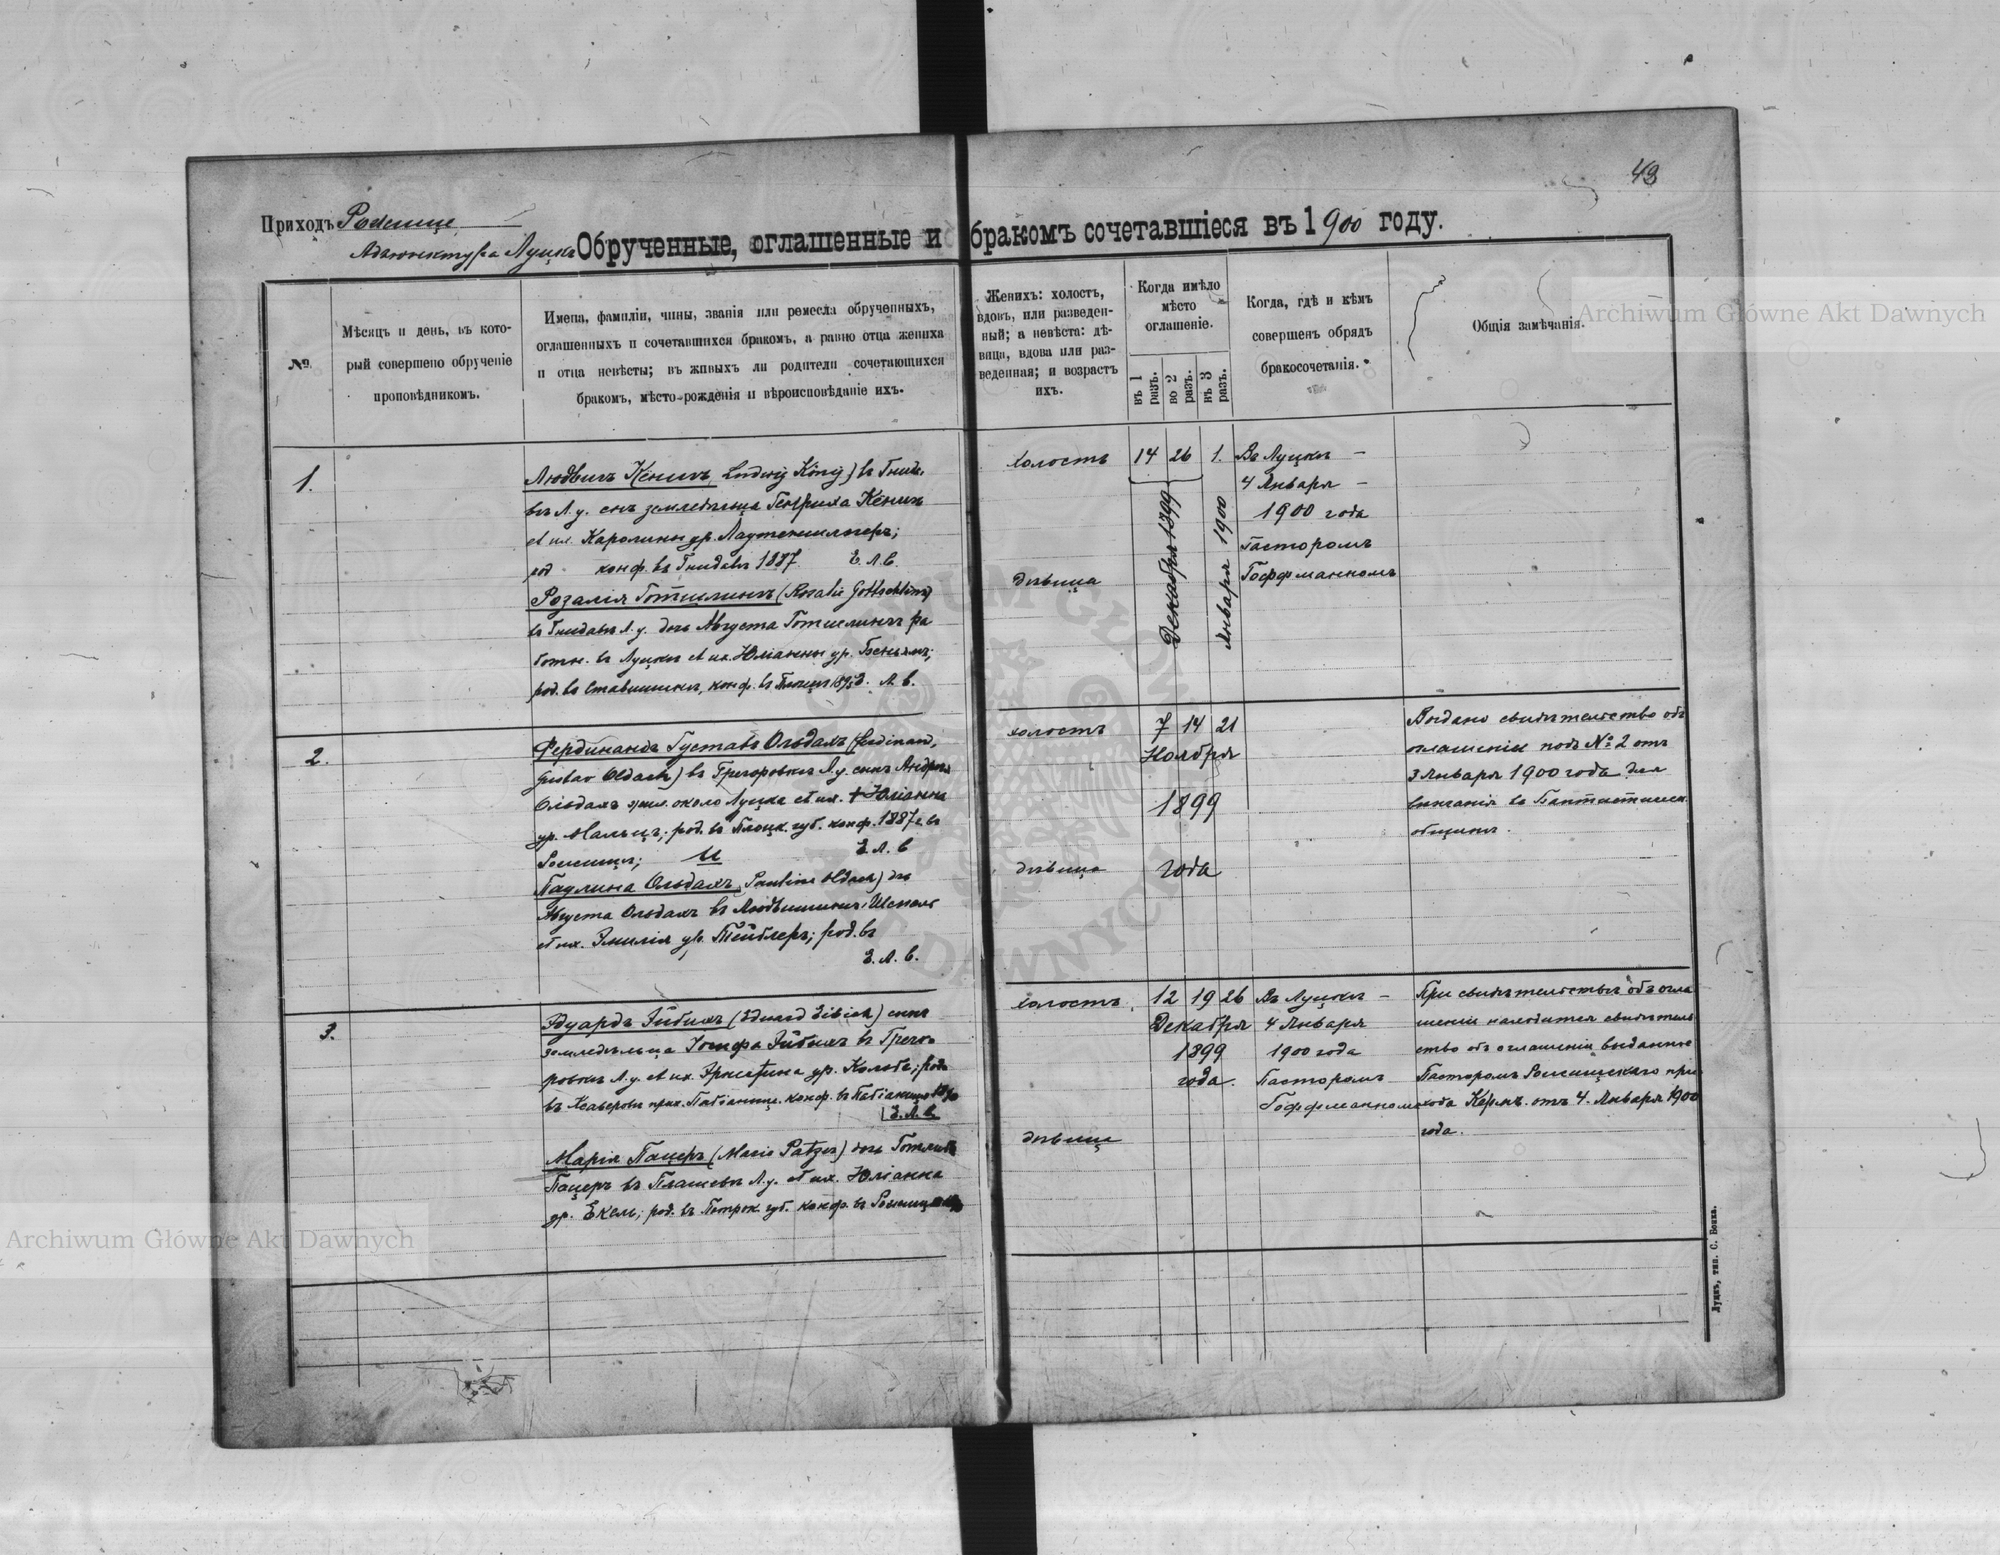 43
Приходъ Рожище
Адъюнктура Луцкъ
Обрученные, оглашенные и бракомъ сочетавшіеся въ 1900 году.
№.
Мѣсяцъ и день, въ кото-
рый совершено обрученіе
проповѣдникомъ.
Имена, фамиліи, чины, званія или ремесла обрученныхъ,
оглашенныхъ и сочетавшихся бракомъ, а равно отца жениха
и отца невѣсты; въ живыхъ ли родители сочетающихся
бракомъ, мѣсто-рожденія и вѣроисповѣданіе ихъ.
Женихъ: холостъ,
вдовъ, или разведен-
ный; а невѣста: дѣ-
вица, вдова или раз-
веденная; и возрастъ
ихъ.
Когда имѣло
мѣсто
оглашеніе.
въ 1 разъ.
во 2 разъ.
въ 3 разъ.
Когда, гдѣ и кѣмъ
совершенъ обрядъ
бракосочетанія.
Общія замѣчанія.
1.
Людвигъ Кёнигъ, Ludwig König) въ Гнид.
въ Л. у. сынъ земледѣльца Генриха Кёнигъ
и Каролины ур.
конф. въ Гнидавѣ 1887. Е. Л. В.
Розалія Готшлингъ (Rosalie Gottschling)
въ Гнидавѣ Л. у. дочь Августа Готшлингъ ра
ботн. въ Луцкѣ Юліанны ур.
род. въ конф. въ Е. Л. В.
холостъ
дѣвица
14 26 1.
Декабря 1899
Января 1900
Въ Луцкѣ —
4 Января —
1900 года
Пасторомъ
Гоффманномъ
2.
Фердинандъ Густавъ Ольдахъ (Ferdinand,
Gustav Oldach) въ Грегоровкѣ Л. у. сынъ Андрея
Ольдахъ жит. около Луцка и + Юліанна
ур. Мальцъ; род. въ Плоцк. губ. конф. 1887 г. въ
Рожищѣ; и Е. Л. В
Паулина Ольдахъ, Pauline Oldach) дч
Августа Ольдахъ въ
Эмилія ур. род. въ
Е. Л. В.
холостъ
дѣвица
7 14 21
Ноября
1899
года
Выдано свидѣтельство объ
оглашеніи подъ № 2 отъ
3 Января 1900 года для
вѣнчанія въ Баптистическ.
общинѣ.
3.
Эдуардъ Эйбихъ (Eduard Eibich) сынъ
земледѣльца Іосифа Эйбихъ въ Грего-
ровкѣ Л. у. Эрнестина ур. Кольбе; род.
въ Ксаверовѣ прих. Пабіаницe. конф. въ Пабіаницe 1890
Е. Л. В.
Марія Пацеръ (Marie Patzer) дочь Готлиба
Пацеръ въ Л. у. Юліанна
ур. Екель; род. въ Петрок. губ. конф. въ Рожищѣ
холостъ
дѣвица
12 19 26
Декабря
1899
года.
Въ Луцкѣ —
4 Января
1900 года
Пасторомъ
Гоффманномъ
При свидѣтельствѣ объ огла
шеніи находится свидѣтель
ство объ оглашеніи выданное
Пасторомъ Рожищскаго при
хода Кермъ отъ 4. Января 1900
года.
Луцкъ, тип. С. Бонка.
Archiwum Główne Akt Dawnych
Archiwum Główne Akt Dawnych